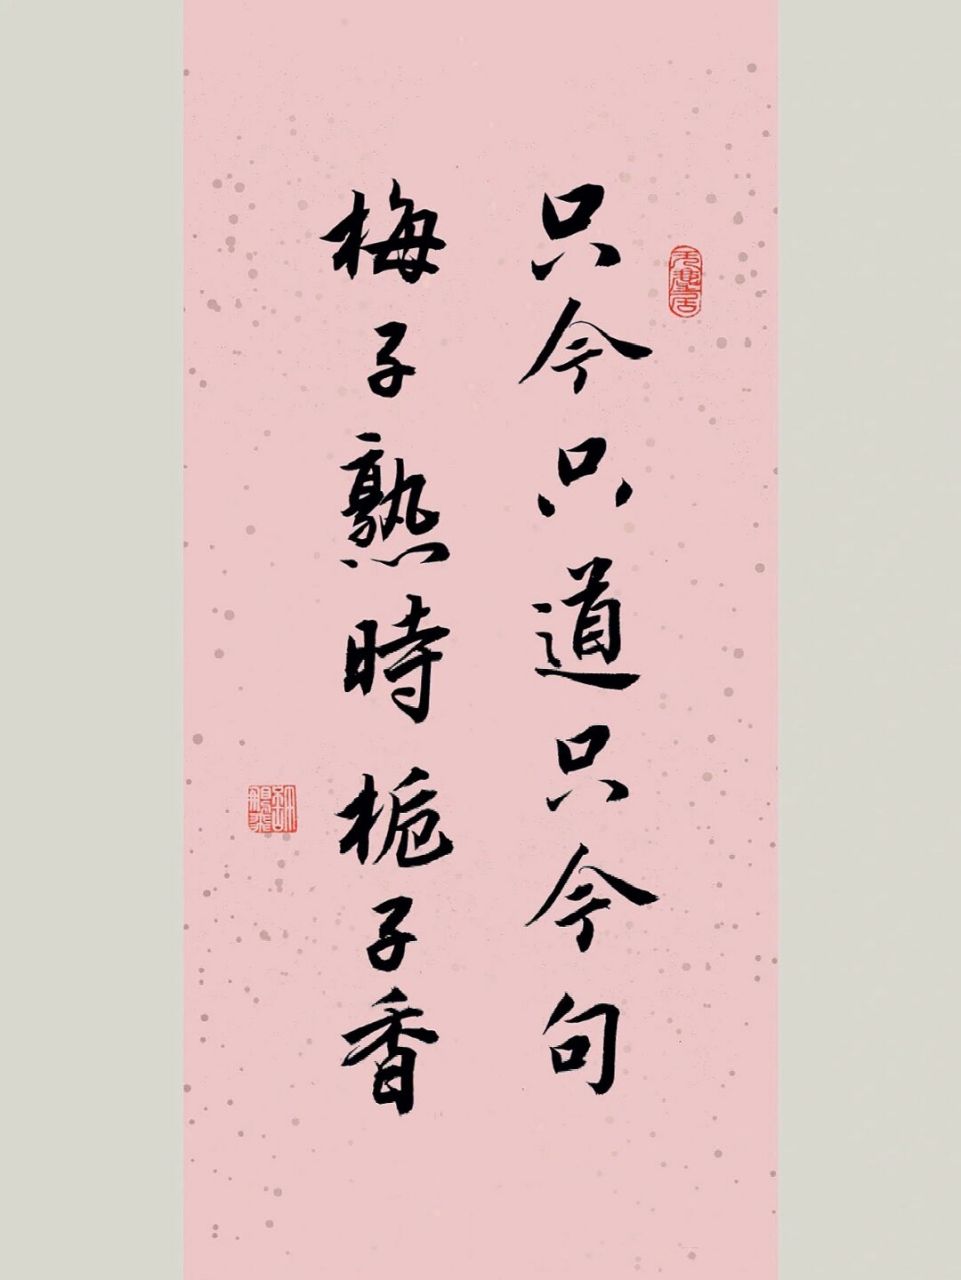 只今只道只今句
梅子熟時梔子香